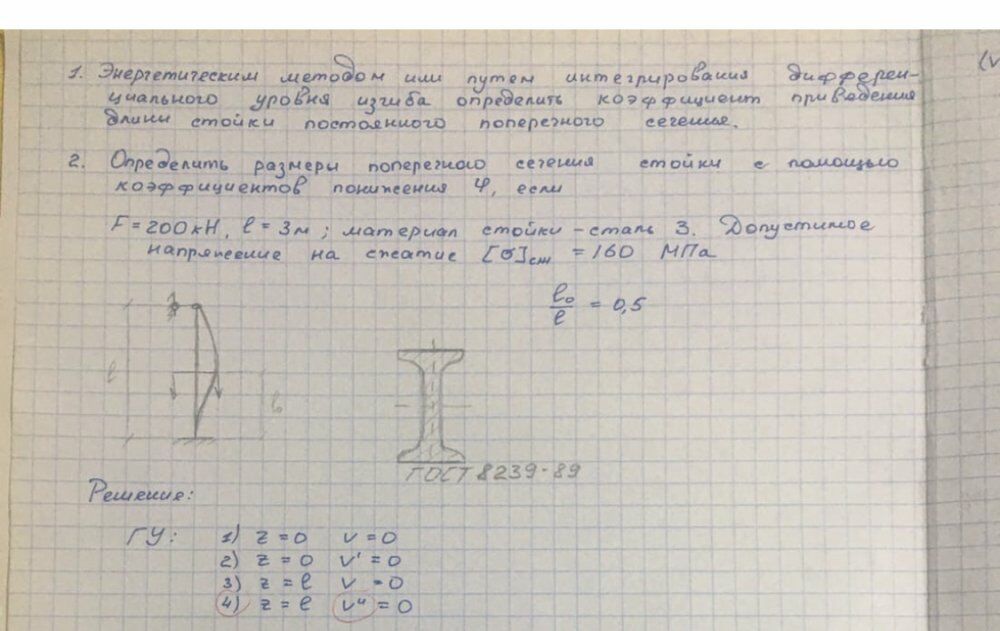 1. Энергетическим методом или путем интегрирования дифферен-
циального уровня изгиба определить коэффициент приведения
длины стойки постоянного поперечного сечения.
2. Определить размеры поперечного сечения стойки с помощью
коэффициентов понижения φ, если
F = 200 кН, l = 3 м; материал стойки - сталь 3. Допустимое
напряжение на сжатие [σ]сж = 160 МПа
l₀/l = 0,5
l
ГОСТ 8239-89
Решение:
ГУ: 1) z = 0 v = 0
2) z = 0 v' = 0
3) z = l v = 0
4) z = l v'' = 0